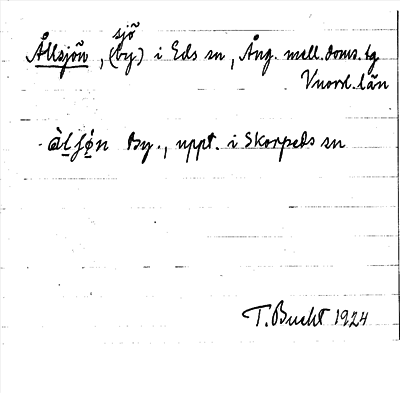 sjö
Ållsjön, (by) i Eds sn, Ång. mell. doms. tg
Vnorrl. län
àl̠ʃǿ̠n by., uppt. i Skorpeds sn
T. Bucht 1924